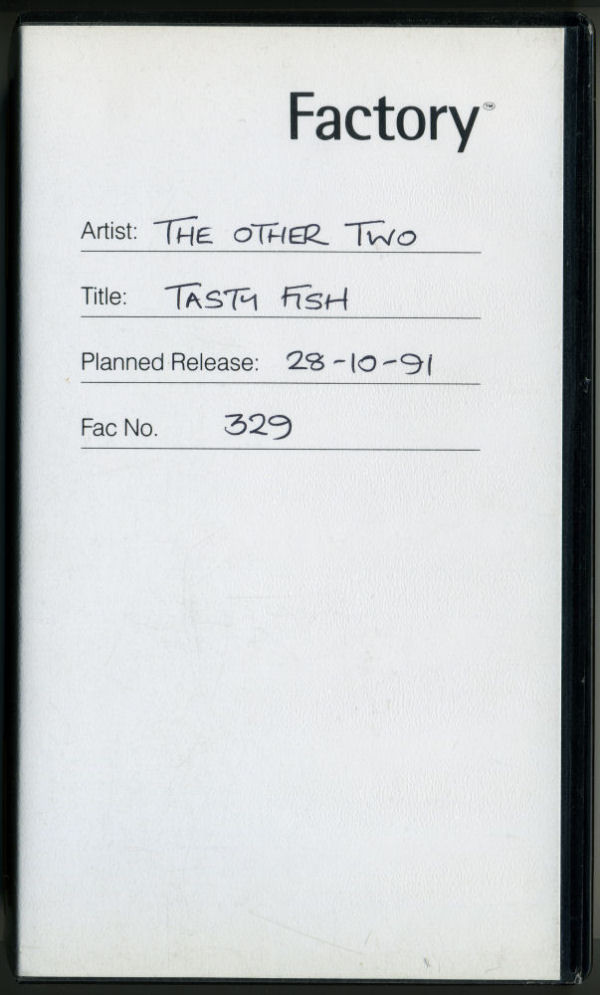 Factory™
Artist: THE OTHER TWO
Title: TASTY FISH
Planned Release: 28-10-91
Fac No. 329